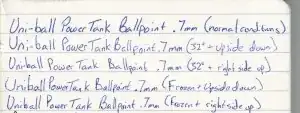 Uni-ball Power Tank Ballpoint .7mm (normal conditions)
Uni-ball Power Tank Ballpoint .7mm (32° + upside down)
Uniball Power Tank Ballpoint .7mm (32° + right side up)
Uniball Power Tank Ballpoint .7mm (Frozen + Upside down)
Uniball Power Tank Ballpoint .7mm (Frozen + right side up)